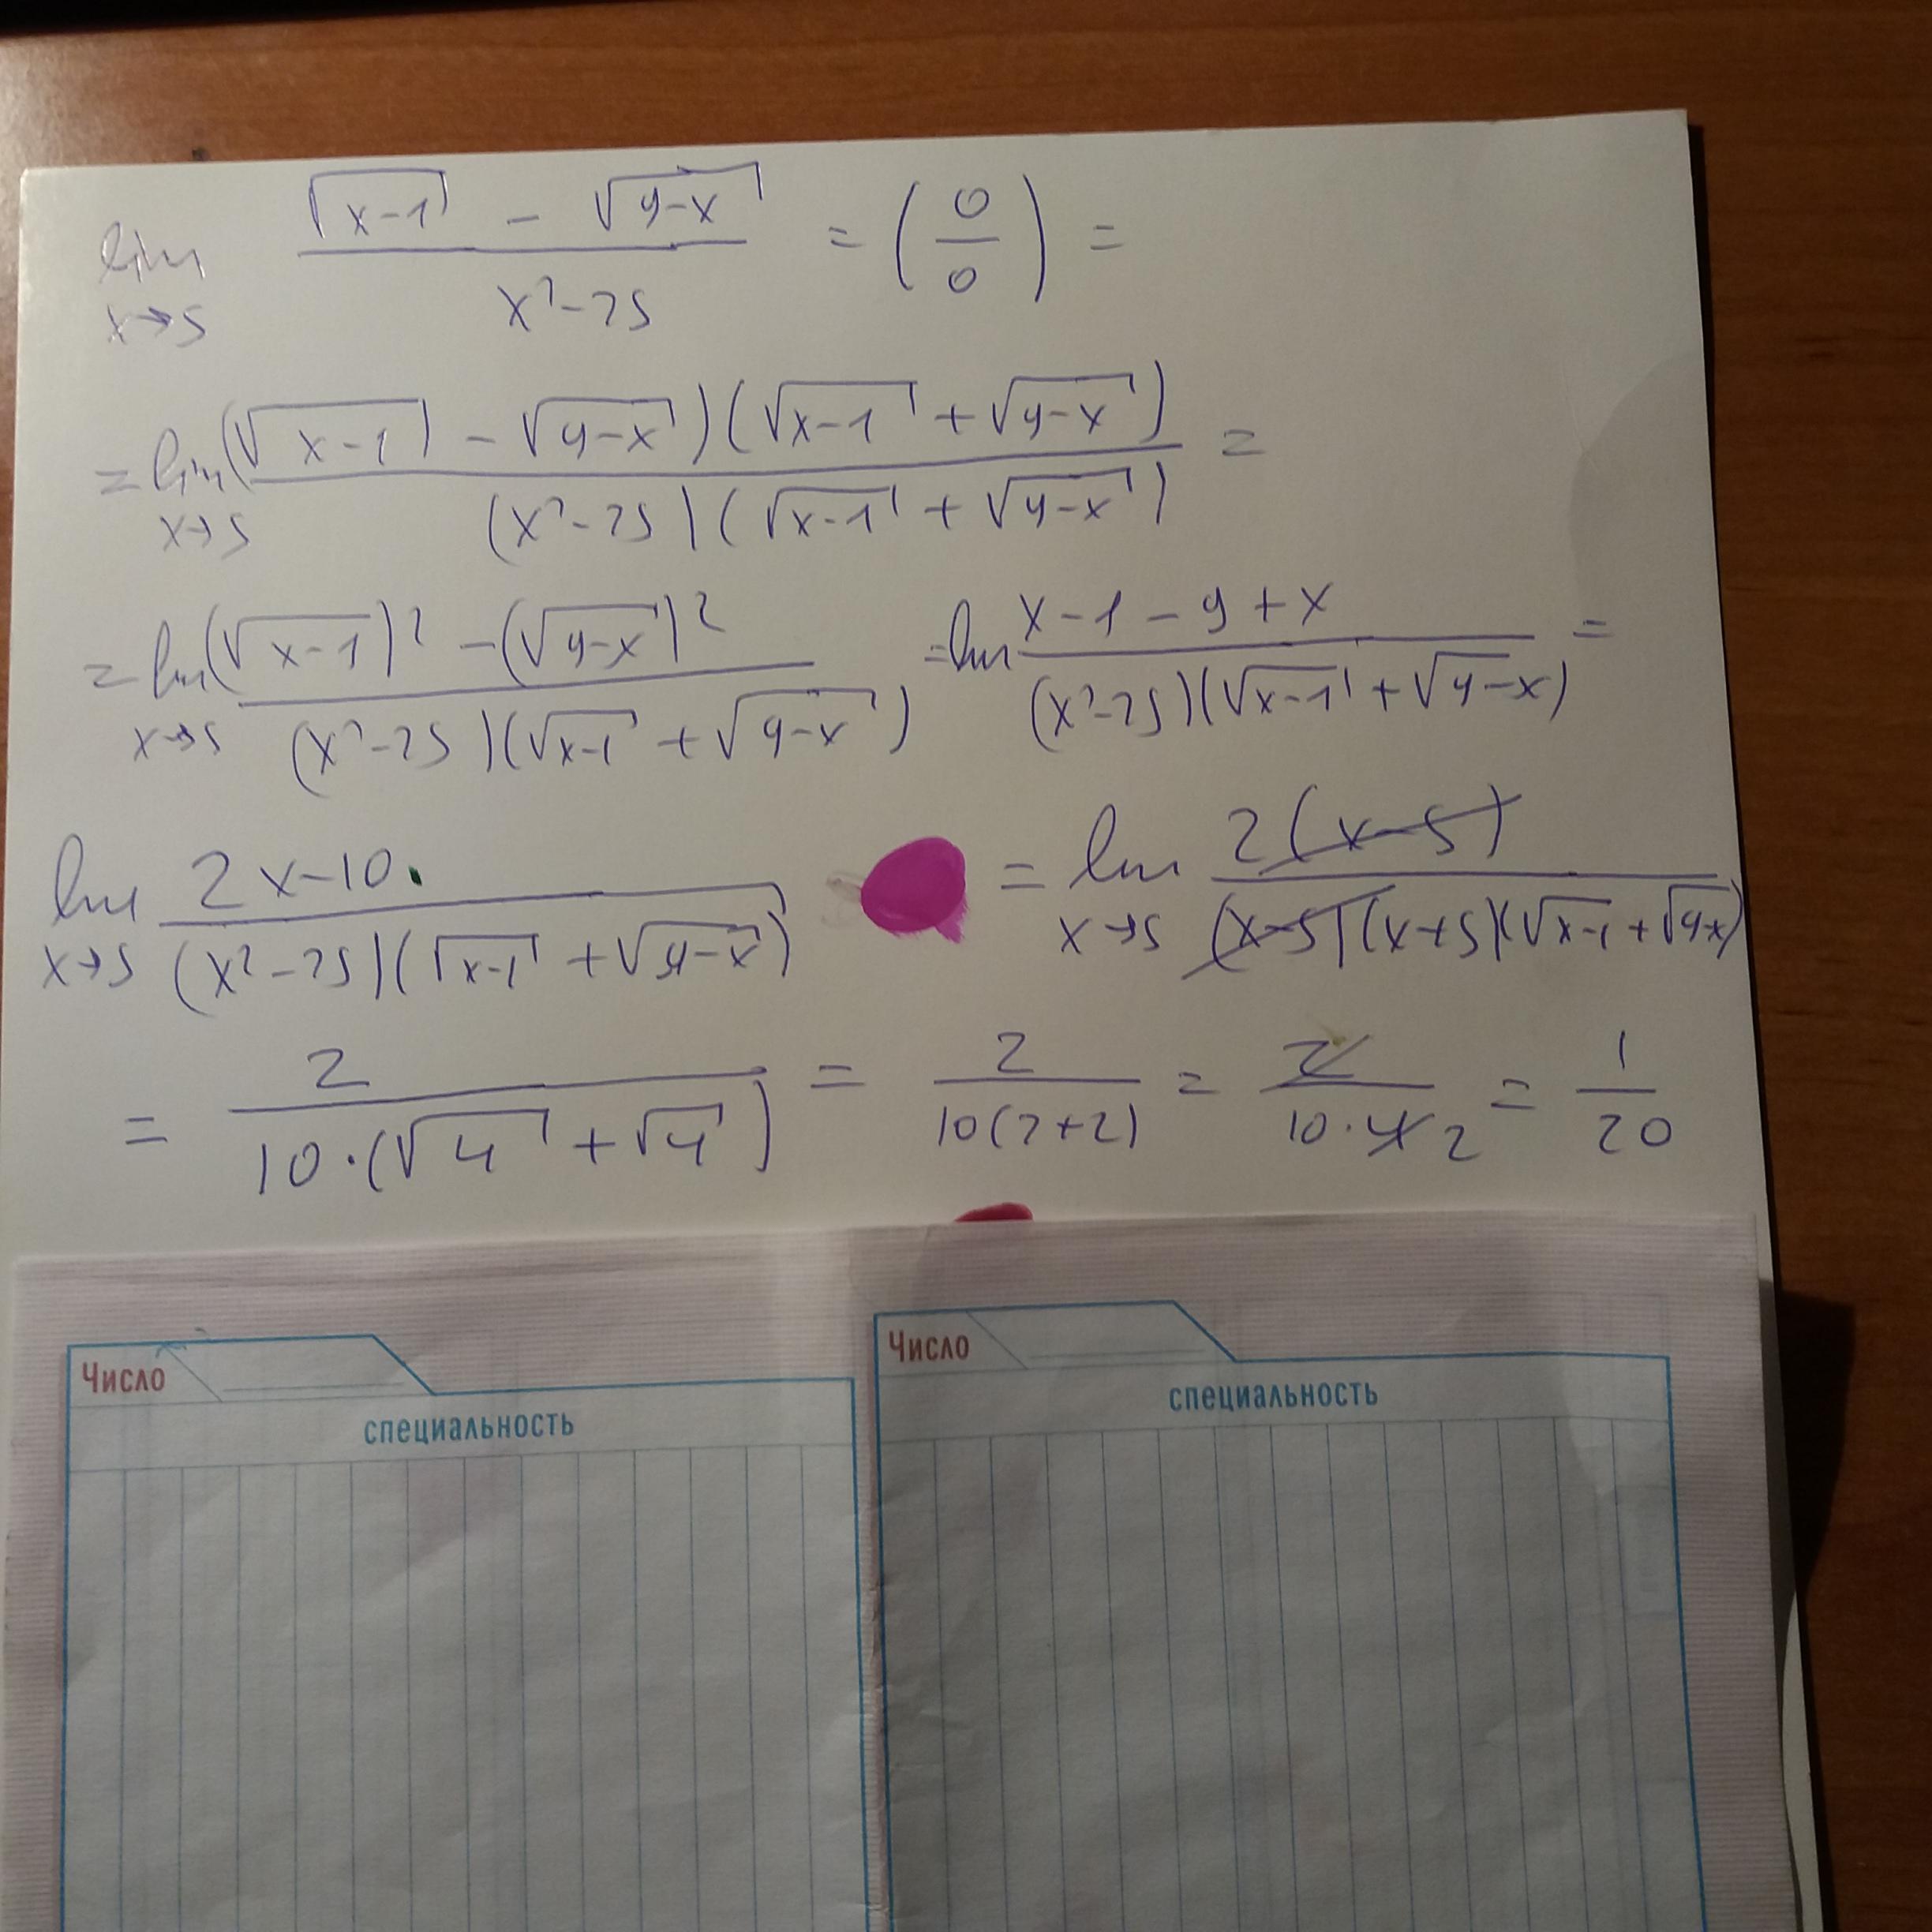 lim x→5 (√(x-1) - √(9-x)) / (x²-25) = (0/0) =
= lim x→5 ((√(x-1) - √(9-x))(√(x-1) + √(9-x))) / ((x²-25)(√(x-1) + √(9-x))) =
= lim x→5 ((√(x-1))² - (√(9-x))²) / ((x²-25)(√(x-1) + √(9-x))) = lim (x-1-9+x) / ((x²-25)(√(x-1) + √(9-x))) =
lim x→5 (2x-10) / ((x²-25)(√(x-1) + √(9-x))) = lim x→5 2(x-5) / ((x-5)(x+5)(√(x-1) + √(9-x)))
= 2 / (10·(√4 + √4)) = 2 / (10(2+2)) = 2 / (10·4 2) = 1/20
Число Число
специальность специальность